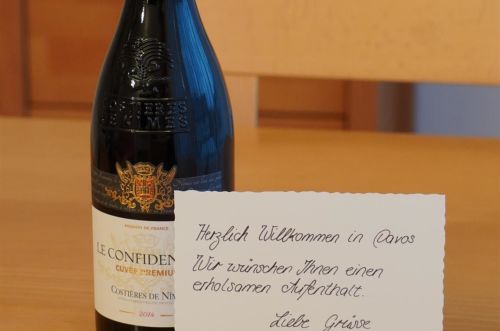 COSTIÈRES
DE NIMES
PRODUCT OF FRANCE
LE CONFIDEN
CUVÉE PREMIU
COSTIÈRES DE NÎM
2014
Herzlich Willkommen in Davos
Wir wünschen Ihnen einen
erholsamen Aufenthalt.
Liebe Grüsse